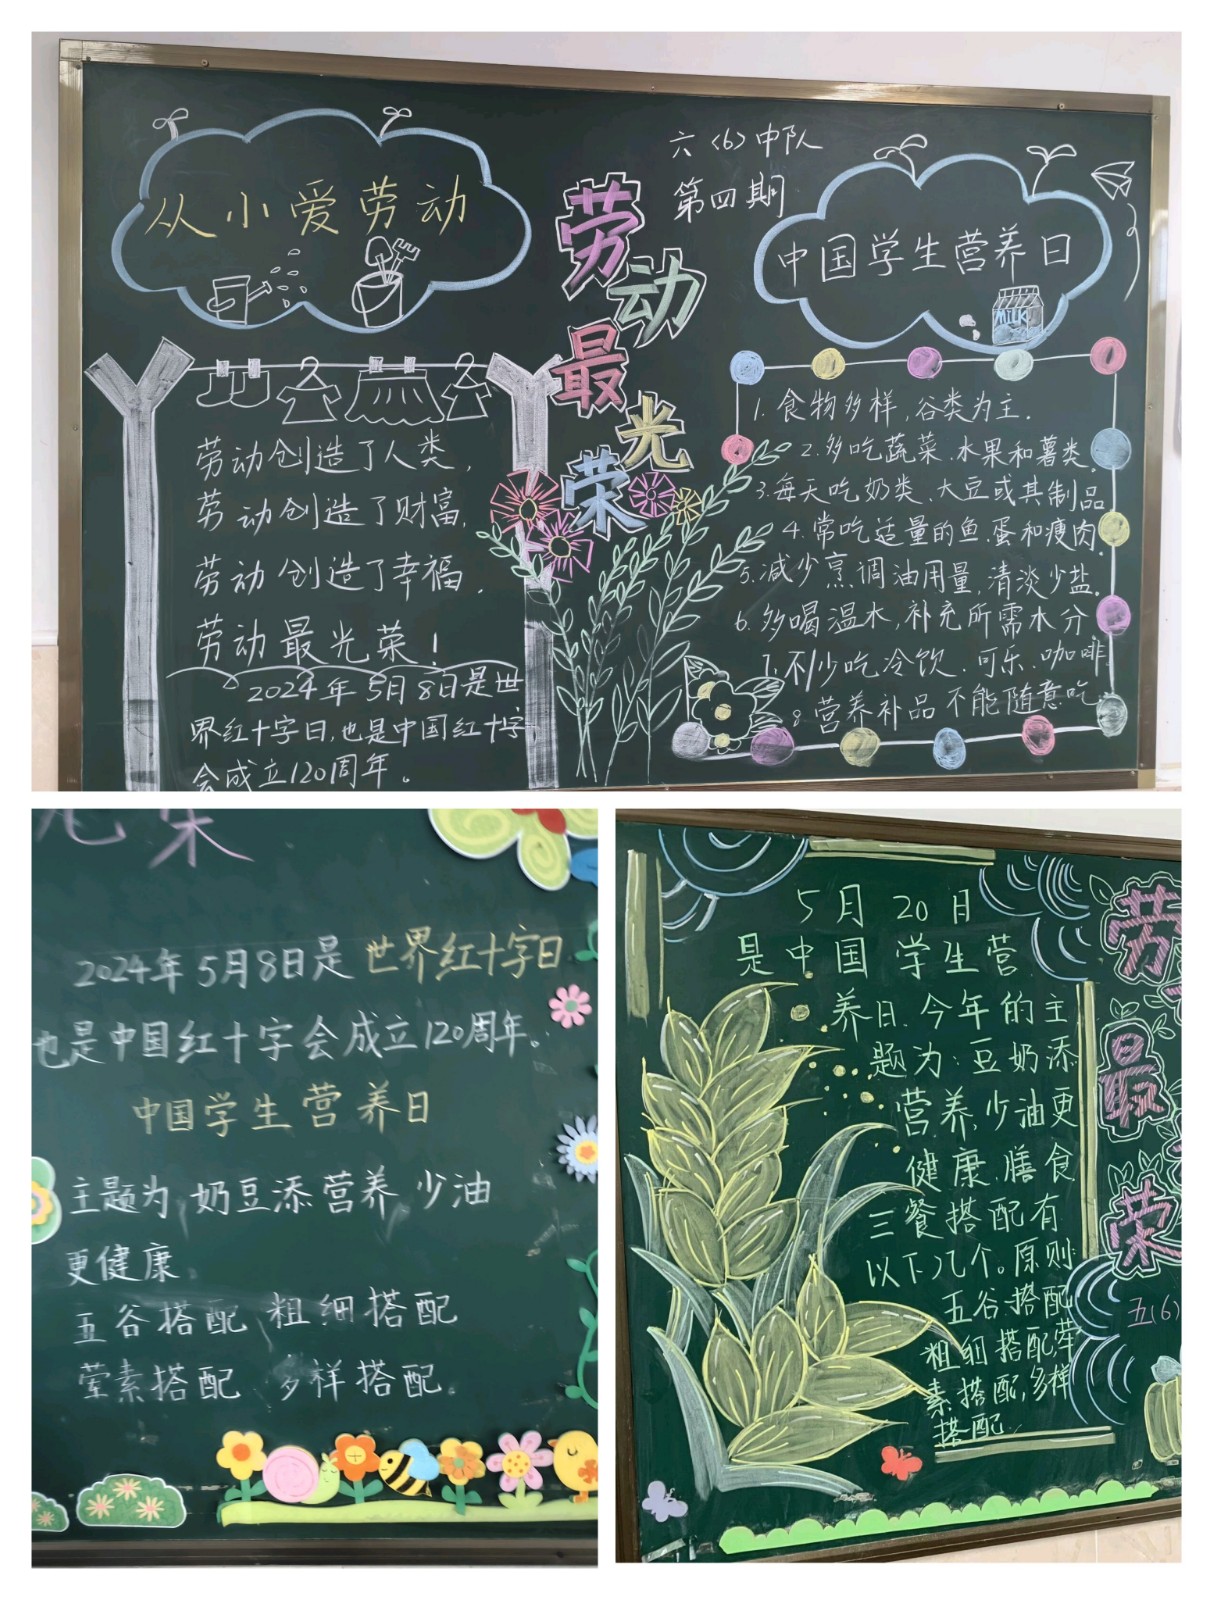 从小爱劳动
劳动创造了人类,
劳动创造了财富,
劳动创造了幸福,
劳动最光荣!
2024年5月8日是世
界红十字日,也是中国红十字
会成立120周年。
劳动最光荣
六<6>中队
第四期
中国学生营养日
MILK
1.食物多样,谷类为主.
2.多吃蔬菜.水果和薯类.
3.每天吃奶类、大豆或其制品
4.常吃适量的鱼.蛋和瘦肉.
5.减少烹调油用量,清淡少盐.
6.多喝温水,补充所需水分
7.不/少吃冷饮、可乐.咖啡
8营养补品不能随意吃
光荣
2024年5月8日是世界红十字日
也是中国红十字会成立120周年。
中国学生营养日
主题为 奶豆添营养 少油
更健康
五谷搭配 粗细搭配
荤素搭配 多样搭配.
5月20日
是中国学生营
养日.今年的主
题为:豆奶添
营养,少油更
健康.膳食
三餐搭配有
以下几个。原则
五谷搭配
粗细搭配荤
素搭配,多样
搭配
劳
最
荣
五(6)